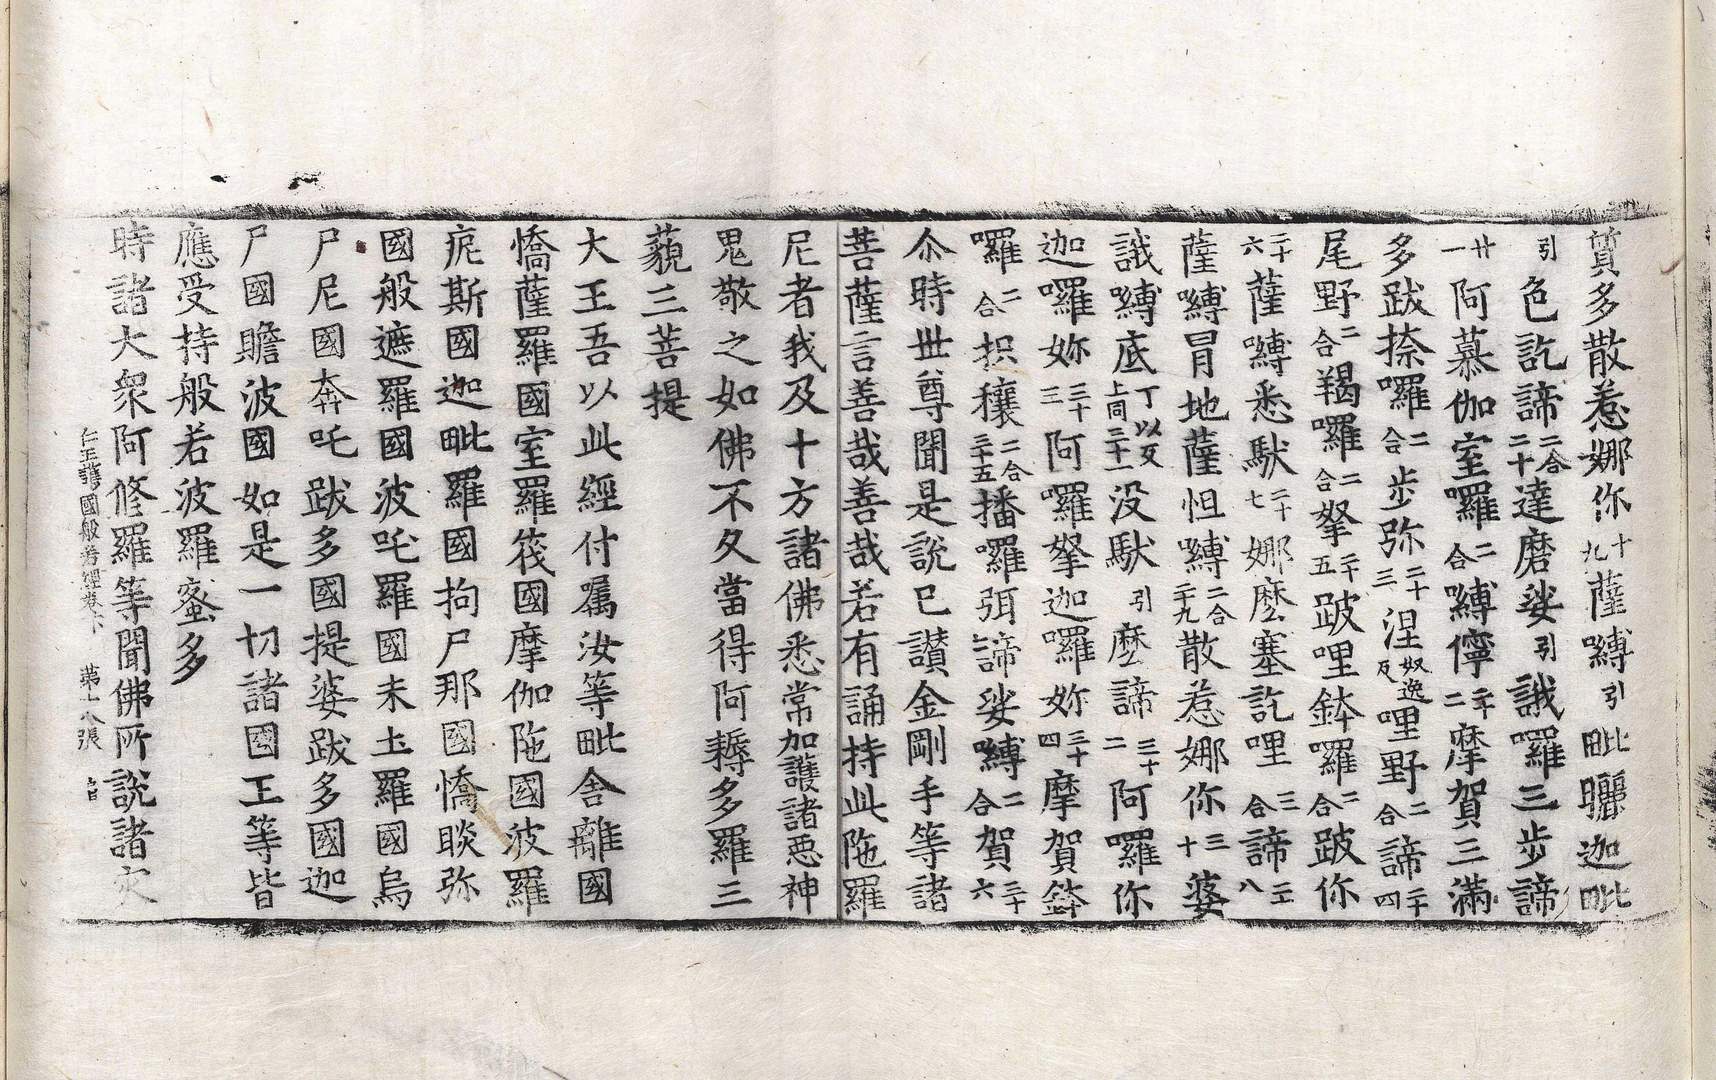 質多散惹娜你十九薩嚩引毗曬迦毗
引色訖諦二合二十達磨娑引誐羅三步諦
廿一阿慕伽室囉二合嚩儜二十二摩賀三滿
多跋捺囉二合步弥二十三涅奴逸反哩野二合諦二十四
尾野二合羯囉二合拏二十五跛哩鉢囉二合跛你
二十六薩嚩悉馱二十七娜麽塞訖哩三合諦二十八
薩嚩冒地薩怛嚩二合二十九散惹娜你三十婆
誐嚩底丁以反上同三十一没馱引麽諦三十二阿囉你
迦囉妳三十三阿囉拏迦囉妳三十四摩賀鉢
囉二合枳穰二合三十五播囉弭諦娑嚩二合賀三十六
尒時世尊聞是説已讃金剛手等諸
菩薩言善哉善哉若有誦持此陁羅
尼者我及十方諸佛悉常加護諸惡神
鬼敬之如佛不久當得阿耨多羅三
藐三菩提
大王吾以此經付囑汝等毗舍離國
憍薩羅國室羅筏國摩伽陁國波羅
痆斯國迦毗羅國拘尸那國憍睒弥
國般遮羅國波吒羅國末土羅國烏
尸尼國奔吒跋多國提婆跋多國迦
尸國瞻波國如是一切諸國王等皆
應受持般若波羅蜜多
時諸大衆阿修羅等聞佛所説諸灾
仁王護國般若經卷下 第十八張